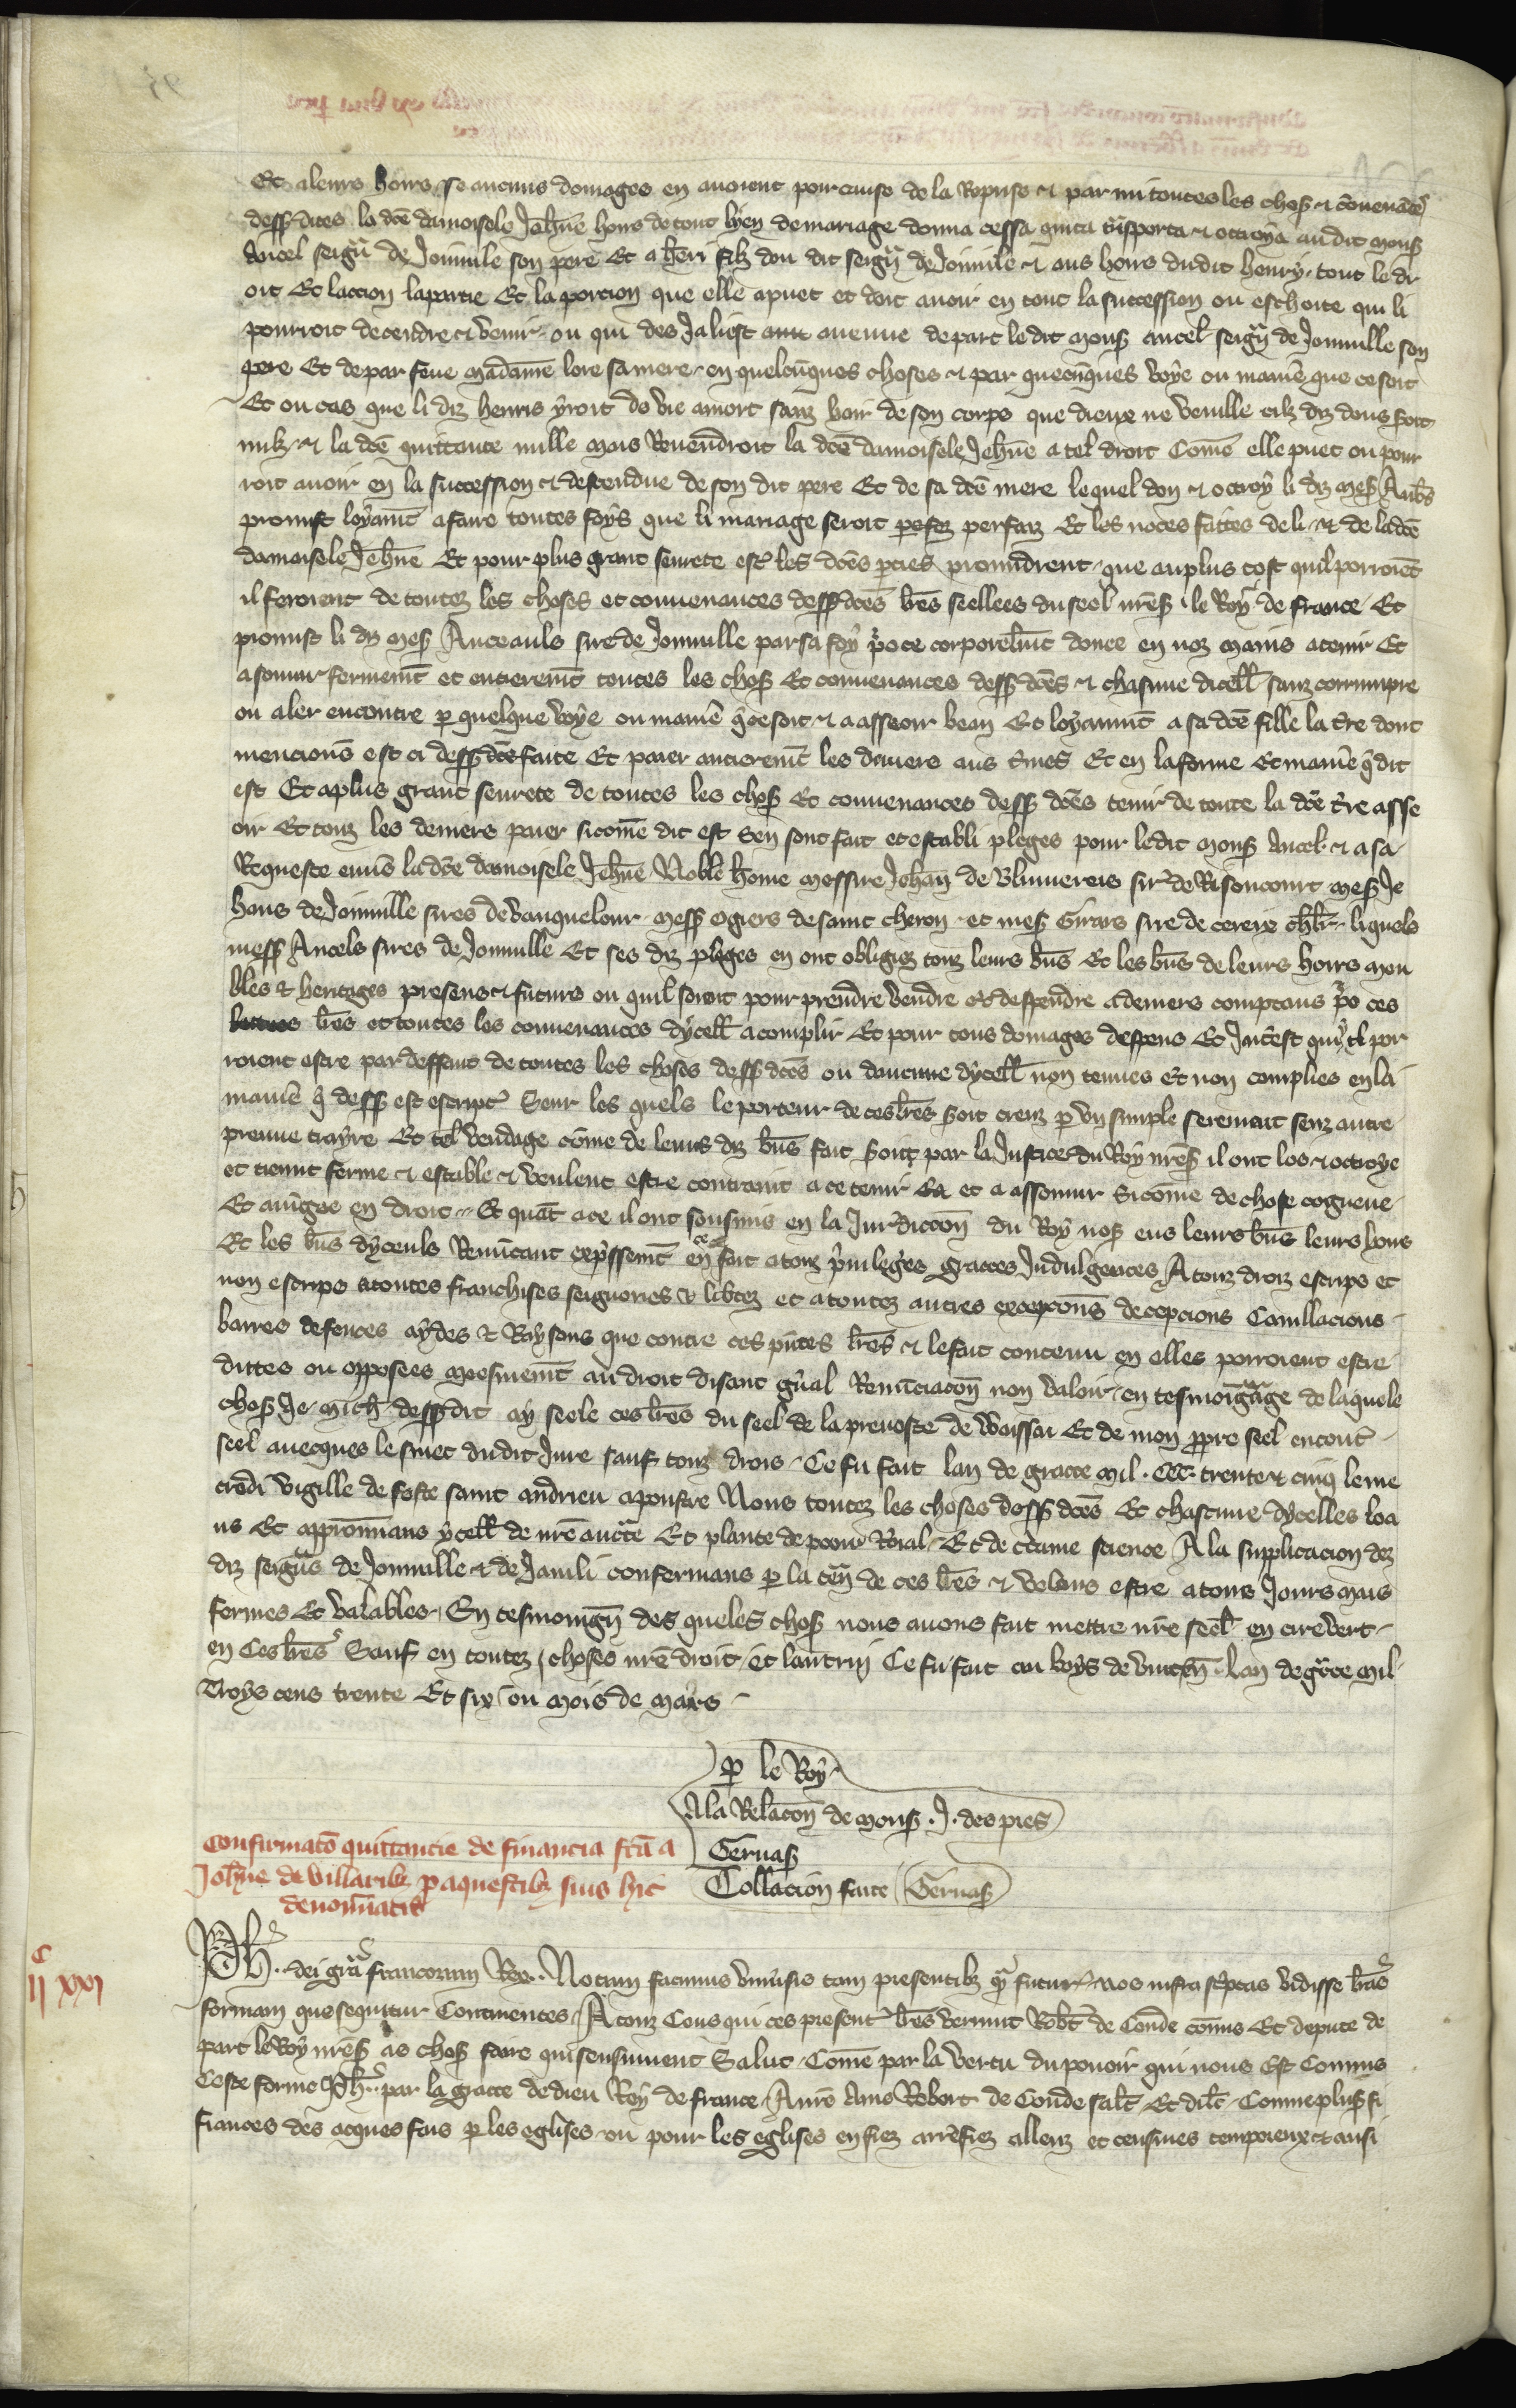 Et a leurs hoirs se aucuns domages en auoient pour cause de la Reprise et par mi toutes les chos et couenāces
dess dites la dcē damoisele Jehn̄e hors de tout lyen de mariage donna cessa quita t̄nsporta et octroya audit mons
Ancel seigr̄ de Joinuile son pere Et a henri filz dou dit seigr̄ de Joinuile et aus hoirs dudit henry tout le dr
oit Et laccion la partie Et la porcion que elle a puet et doit auoir en tout la succession ou eschoite qui li
pourroit decendre et venir ou qui des Ja li est auenue de part le dit mons ancel seigr̄ de Joinuille son
pere Et de par feue madame lore sa mere en quelcūques choses et par quecūques voye ou manie que ce soit
Et ou cas que li diz henris yroit de vie a mort sanz hoir de son corps que dieux ne veuille cilz diz dons soit
nulz et la dcē quittance nulle mais Reuendroit la dcē damoisele Jehn̄e a tel droit Comē elle puet ou pour
roit auoir en la succession et descendue de son dit pere Et de sa dcē mere le quel don et octroy li diz mes Aub̄s
promist loyamt a faire toutes foys que li mariage seroit perfaiz Et les noces faites de li et de ladcē
damoisele Jehn̄e Et pour plus grant seurete est les dcēs pties promidrent que au plus tost quil porroiēt
il feroient de toutez les choses et conuenances dess dcēs lr̄es seellees du seel nr̄es le Roy de france Et
promist li diz mes Anceaulx sire de Joinuille par sa foy p̄o ce corporelmt donee en noz mains a tenir Et
a somur fermemt et entieremt toutes les chos Et conuenances dess dcēs et chascune dicell sanz corrumpre
ou aler encontre p quelque voye ou manie q̄ ce soit et a asseoir bean Et loyaumt a sa dcē fille la t̄re dont
mencions est ci dess dcēs faite Et paier entieremt les deniers aus t̄mes Et en la forme Et manie q̄ dit
est Et a plus grant seurete de toutes les chos Et conuenances dess dcēs tenir de toute la dcē t̄re asse
oir Et touz les deniers paier si comē dit est sen sont fait et establi pleges pour ledit mons Ancel et a sa
Requeste enuers la dcē damoisele Jehn̄e Noble home messire Jehan de Blimereis sire de Risoncourt mes Je
hans de Joinuille sires de vauquelour mess ogiers de saint cheron et mes Girars sire de cereix ch̄lr liquels
mess Ancels sires de Joinuille Et ses diz pleges en ont obligiez touz leurs bn̄s Et les bn̄s de leurs hoirs mou
bles et heritages presens et futurs ou quil soient pour prendre vendre et despendre a deniers comptans p̄o ces
lr̄es et toutes les conuenances dycell acomplir Et pour tous domages despens Et Int̄est qui y por
roient estre par deffaut de toutes les choses dess dcēs ou daucune dycell non tenues et non complies en la
manie q̄ dess est escript Seur les quels le porteur de ces lr̄es soit creuz p vn simple serement senz autre
preuue trayre Et tel vendage come de leurs diz bn̄s fait soit par la Justice du Roy nr̄es il ont los et octroye
et tienent ferme et estable et veulent estre contraint a ce tenir et a assomur si come de chose cogneue
Et aiugee en droit Et quāt a ce il ont sousmis en la Jurdiccon du Roy nos eus leurs bn̄s leurs hoirs
Et les bn̄s dyceuls Renūcant exp̄ssemt en ce fait a touz p̄uileges graces Indulgences A touz droiz escrips et
non escrips a toutes franchises seignories et lib̄tez et a toutez autres excepcons decepcions Cauillacions
barres defences aydes et Raysons que contre ces pn̄tes lr̄es et le fait contenu en elles porroient estre
dittes ou opposees mesmemt au droit disant gn̄al Renūciacon non valoir en tesmoigāge de laquele
chos Je Mich dess dit ay seele ces lr̄es du seel de la preuoste de Waissai Et de mon ppre seel encont
seel auecques le sinet dudit Jure sauf touz drois Ce fu fait lan de grace mil CCC trente et cinq le me
credi vigille de feste saint andrieu apoustre Nous toutez les choses dess dcēs Et chascune dycelles loa
ns Et approuuans ycell de nr̄e auctte Et plante de pooir Roial Et de c̄taine science A la supplicacion dez
diz seigrs de Joinuille et de Jauili confermans p la ten̄ de ces lr̄es et volans estre a tous Jours mais
fermes Et valables En tesmoingn̄ des queles chos nous auons fait mettre nr̄e seel en cire vert
en Ces lr̄es Sauf en toutez choses nr̄e droit et lautruj Ce fu fait au boys de vincen̄ lan de grace mil
Troys cens trente Et six ou mois de mars
p le Roy
A la Relacon de mons J des pres
Geruas
Collacion faite Geruas
Confirmatō quittancie de financia fcā a
Joh̄ne de villaribz p aquestibz suis hic
denoīatis
IIc XXI
Ph dei grā francorum Rex Notum facimus vniūsis tam presentibz q̄ futur nos infrascptas vidisse lr̄as
formam que sequitur Continentes A touz Ceus qui ces present lr̄es verrunt Rob̄t de Conde comis Et depute de
part le Roy nr̄es as chos faire qui sensiuuent Salut Comē par la vertu du pouoir qui nous est Commis
Ceste forme Ph par la grace de dieu Roy de france A nr̄e Ame Robert de Conde salt Et dilc̄ Comme plus fi
fiances des acques fais p les eglises ou pour les eglises en fiez arr̄efiez alleuz et censiues temporeux et ausi